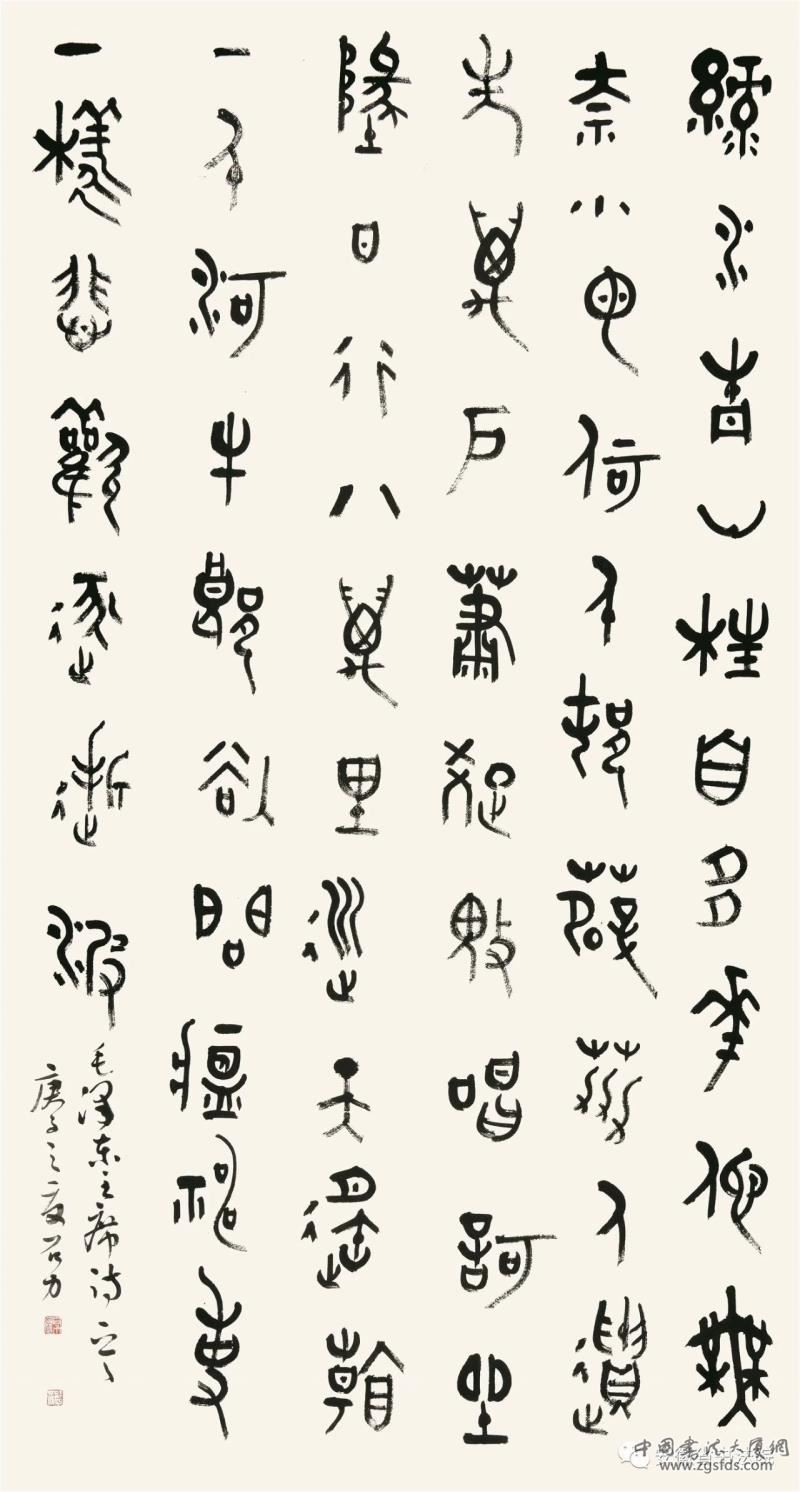 綠水青山枉自多華佗無
奈小虫何千村薜荔人遺
矢萬戶蕭疏鬼唱歌坐
地日行八萬里巡天遙看
一千河牛郎欲問瘟神事
一樣悲歡逐逝波
毛澤東主席詩
庚子之夏
中國書法大廈網
www.zgsfds.com